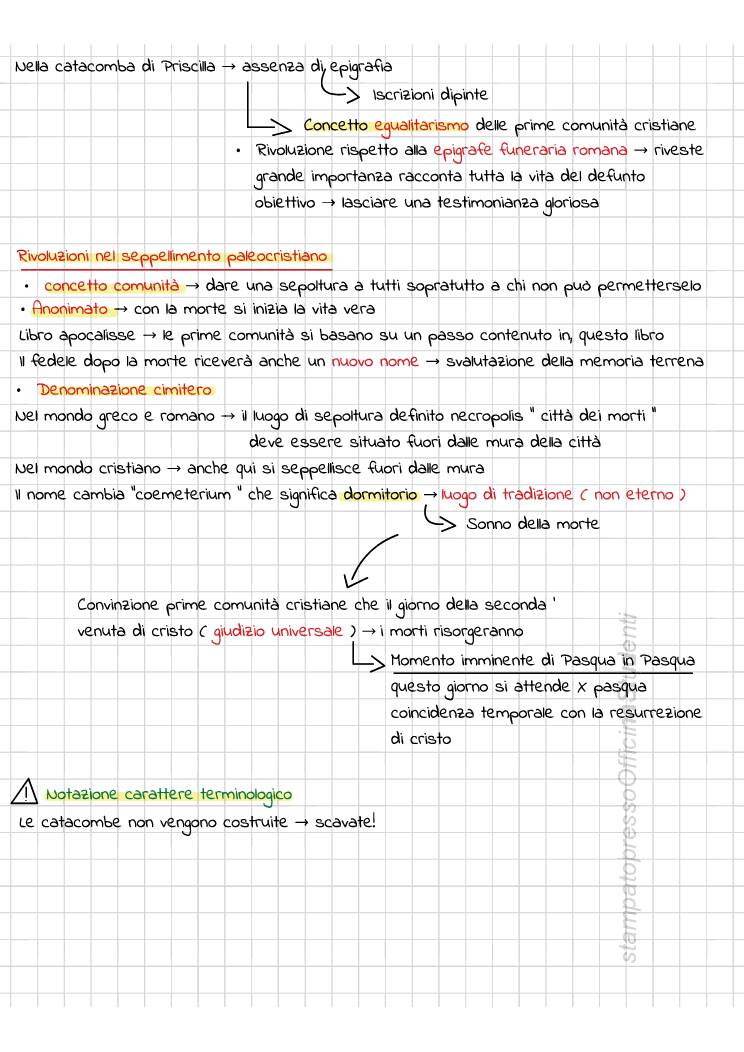 Nella catacomba di Priscilla → assenza di epigrafia
Iscrizioni dipinte
Concetto egualitarismo delle prime comunità cristiane
• Rivoluzione rispetto alla epigrafe funeraria romana → riveste
grande importanza racconta tutta la vita del defunto
obiettivo → lasciare una testimonianza gloriosa
Rivoluzioni nel seppellimento paleocristiano
• concetto comunità → dare una sepoltura a tutti sopratutto a chi non può permetterselo
• Anonimato → con la morte si inizia la vita vera
Libro apocalisse → le prime comunità si basano su un passo contenuto in, questo libro
Il fedele dopo la morte riceverà anche un nuovo nome → svalutazione della memoria terrena
• Denominazione cimitero
Nel mondo greco e romano → il luogo di sepoltura definito necropolis " città dei morti "
deve essere situato fuori dalle mura della città
Nel mondo cristiano → anche qui si seppellisce fuori dalle mura
Il nome cambia "coemeterium " che significa dormitorio → luogo di tradizione ( non eterno )
Sonno della morte
Convinzione prime comunità cristiane che il giorno della seconda '
venuta di cristo ( giudizio universale ) → i morti risorgeranno
Momento imminente di Pasqua in Pasqua
questo giorno si attende x pasqua
coincidenza temporale con la resurrezione
di cristo
Notazione carattere terminologico
Le catacombe non vengono costruite → scavate!
stampatopressoOfficinaStudenti